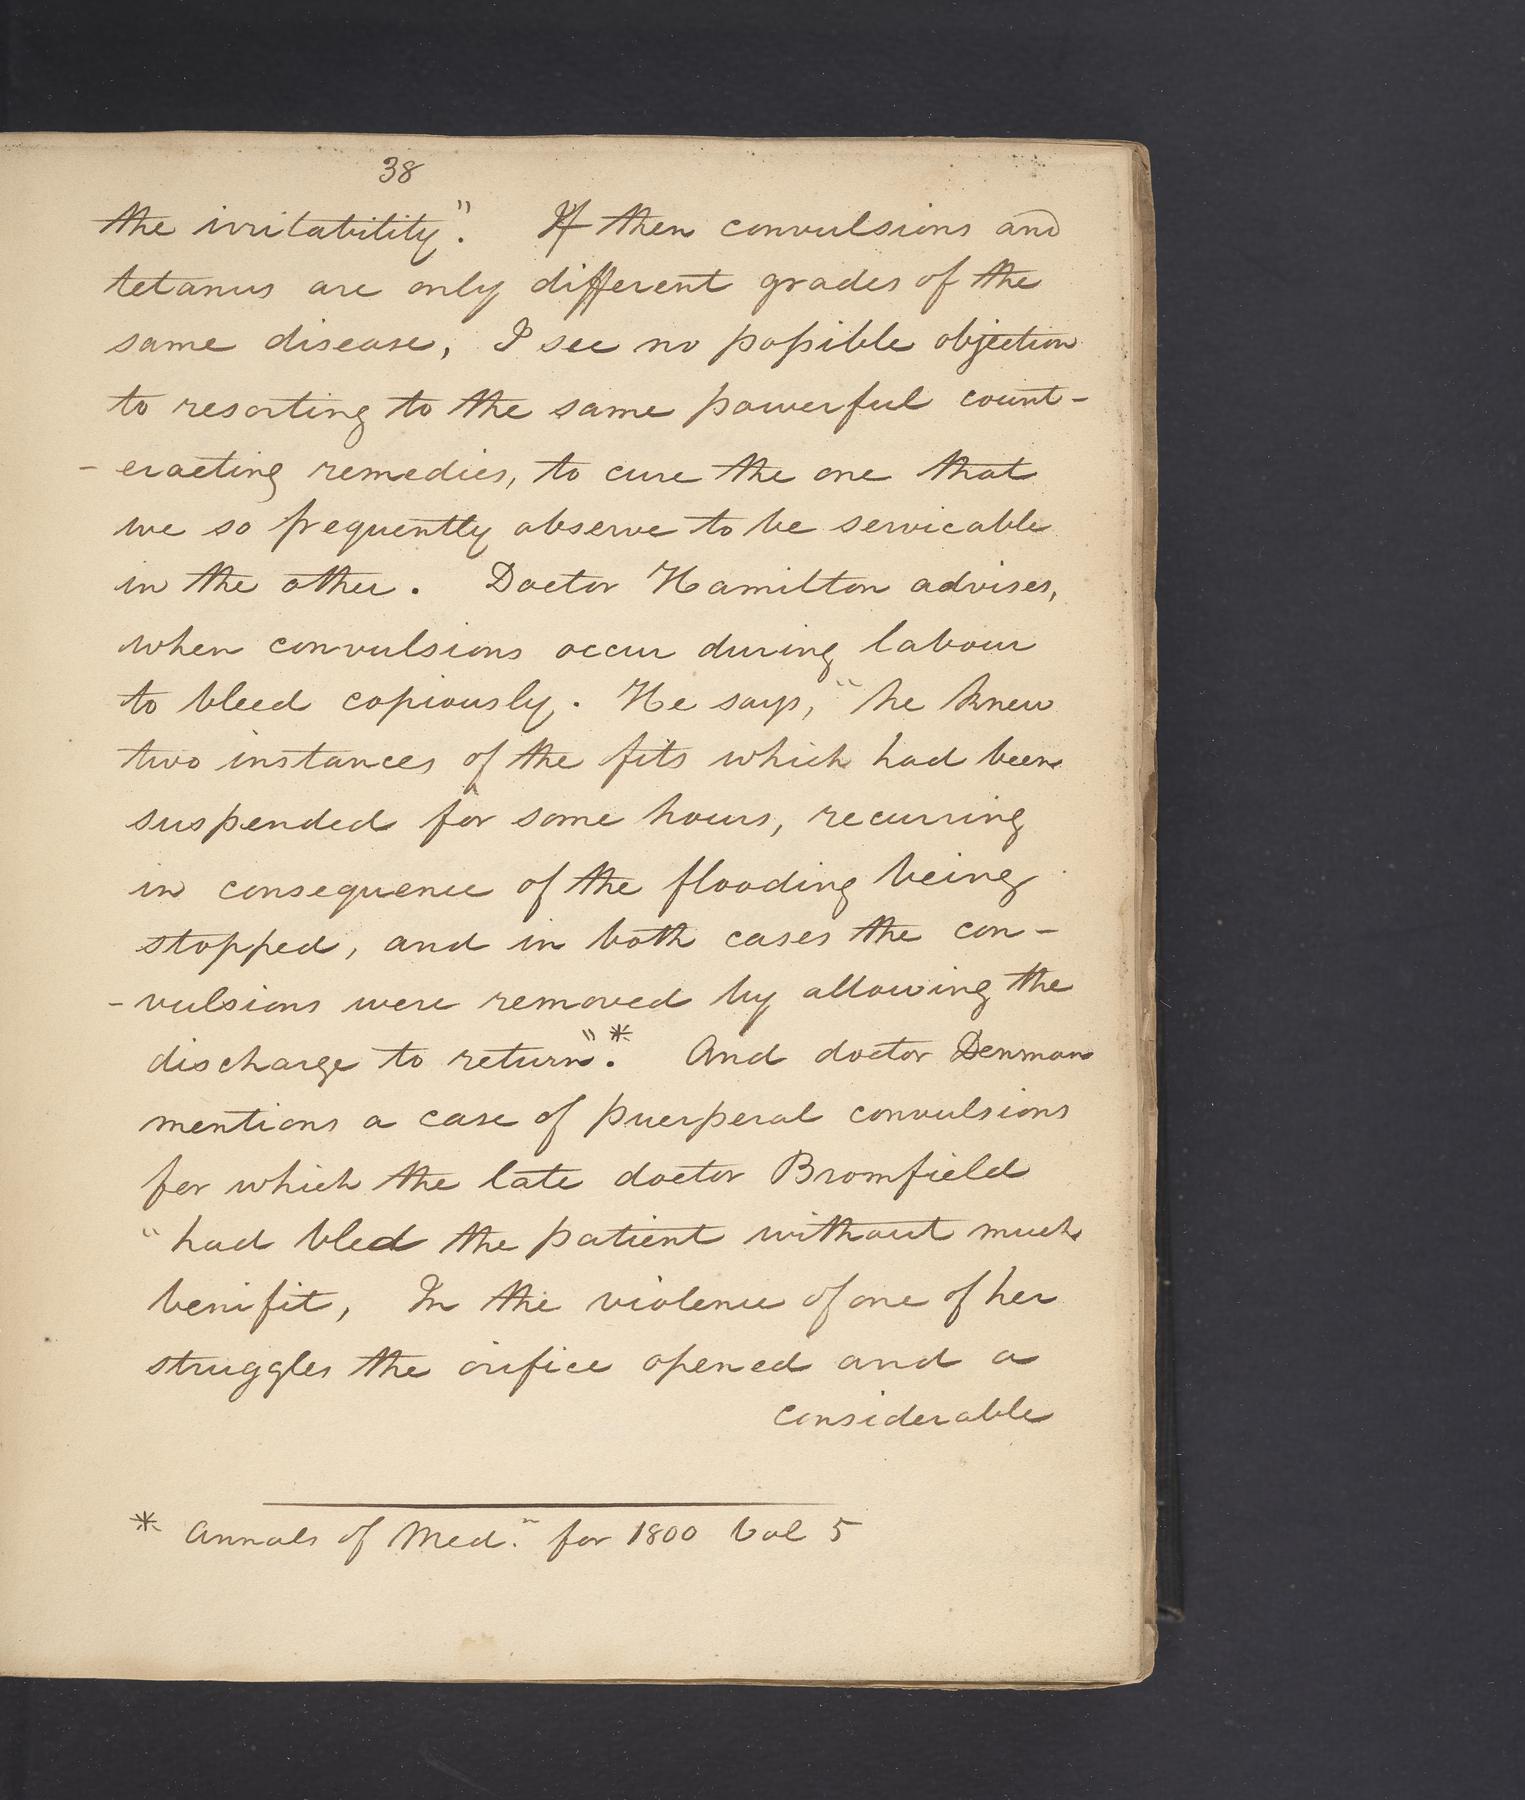 38
the irritability". If then convulsions and
tetanus are only different grades of the
same disease, I see no possible objection
to resorting to the same powerful count-
-eracting remedies, to cure the one that
we so frequently observe to be servicable
in the other. Doctor Hamilton advises,
when convulsions occur during labour
to bleed copiously. He says, "he knew
two instances of the fits which had been
suspended for some hours, recurring
in consequence of the flooding being
stopped, and in both cases the con-
-vulsions were removed by allowing the
discharge to return".* And doctor Denman
mentions a case of puerperal convulsions
for which the late doctor Bromfield
"had bled the patient without much
benifit, In the violence of one of her
struggles the orifice opened and a
considerable
* Annals of Med.n for 1800 Vol 5